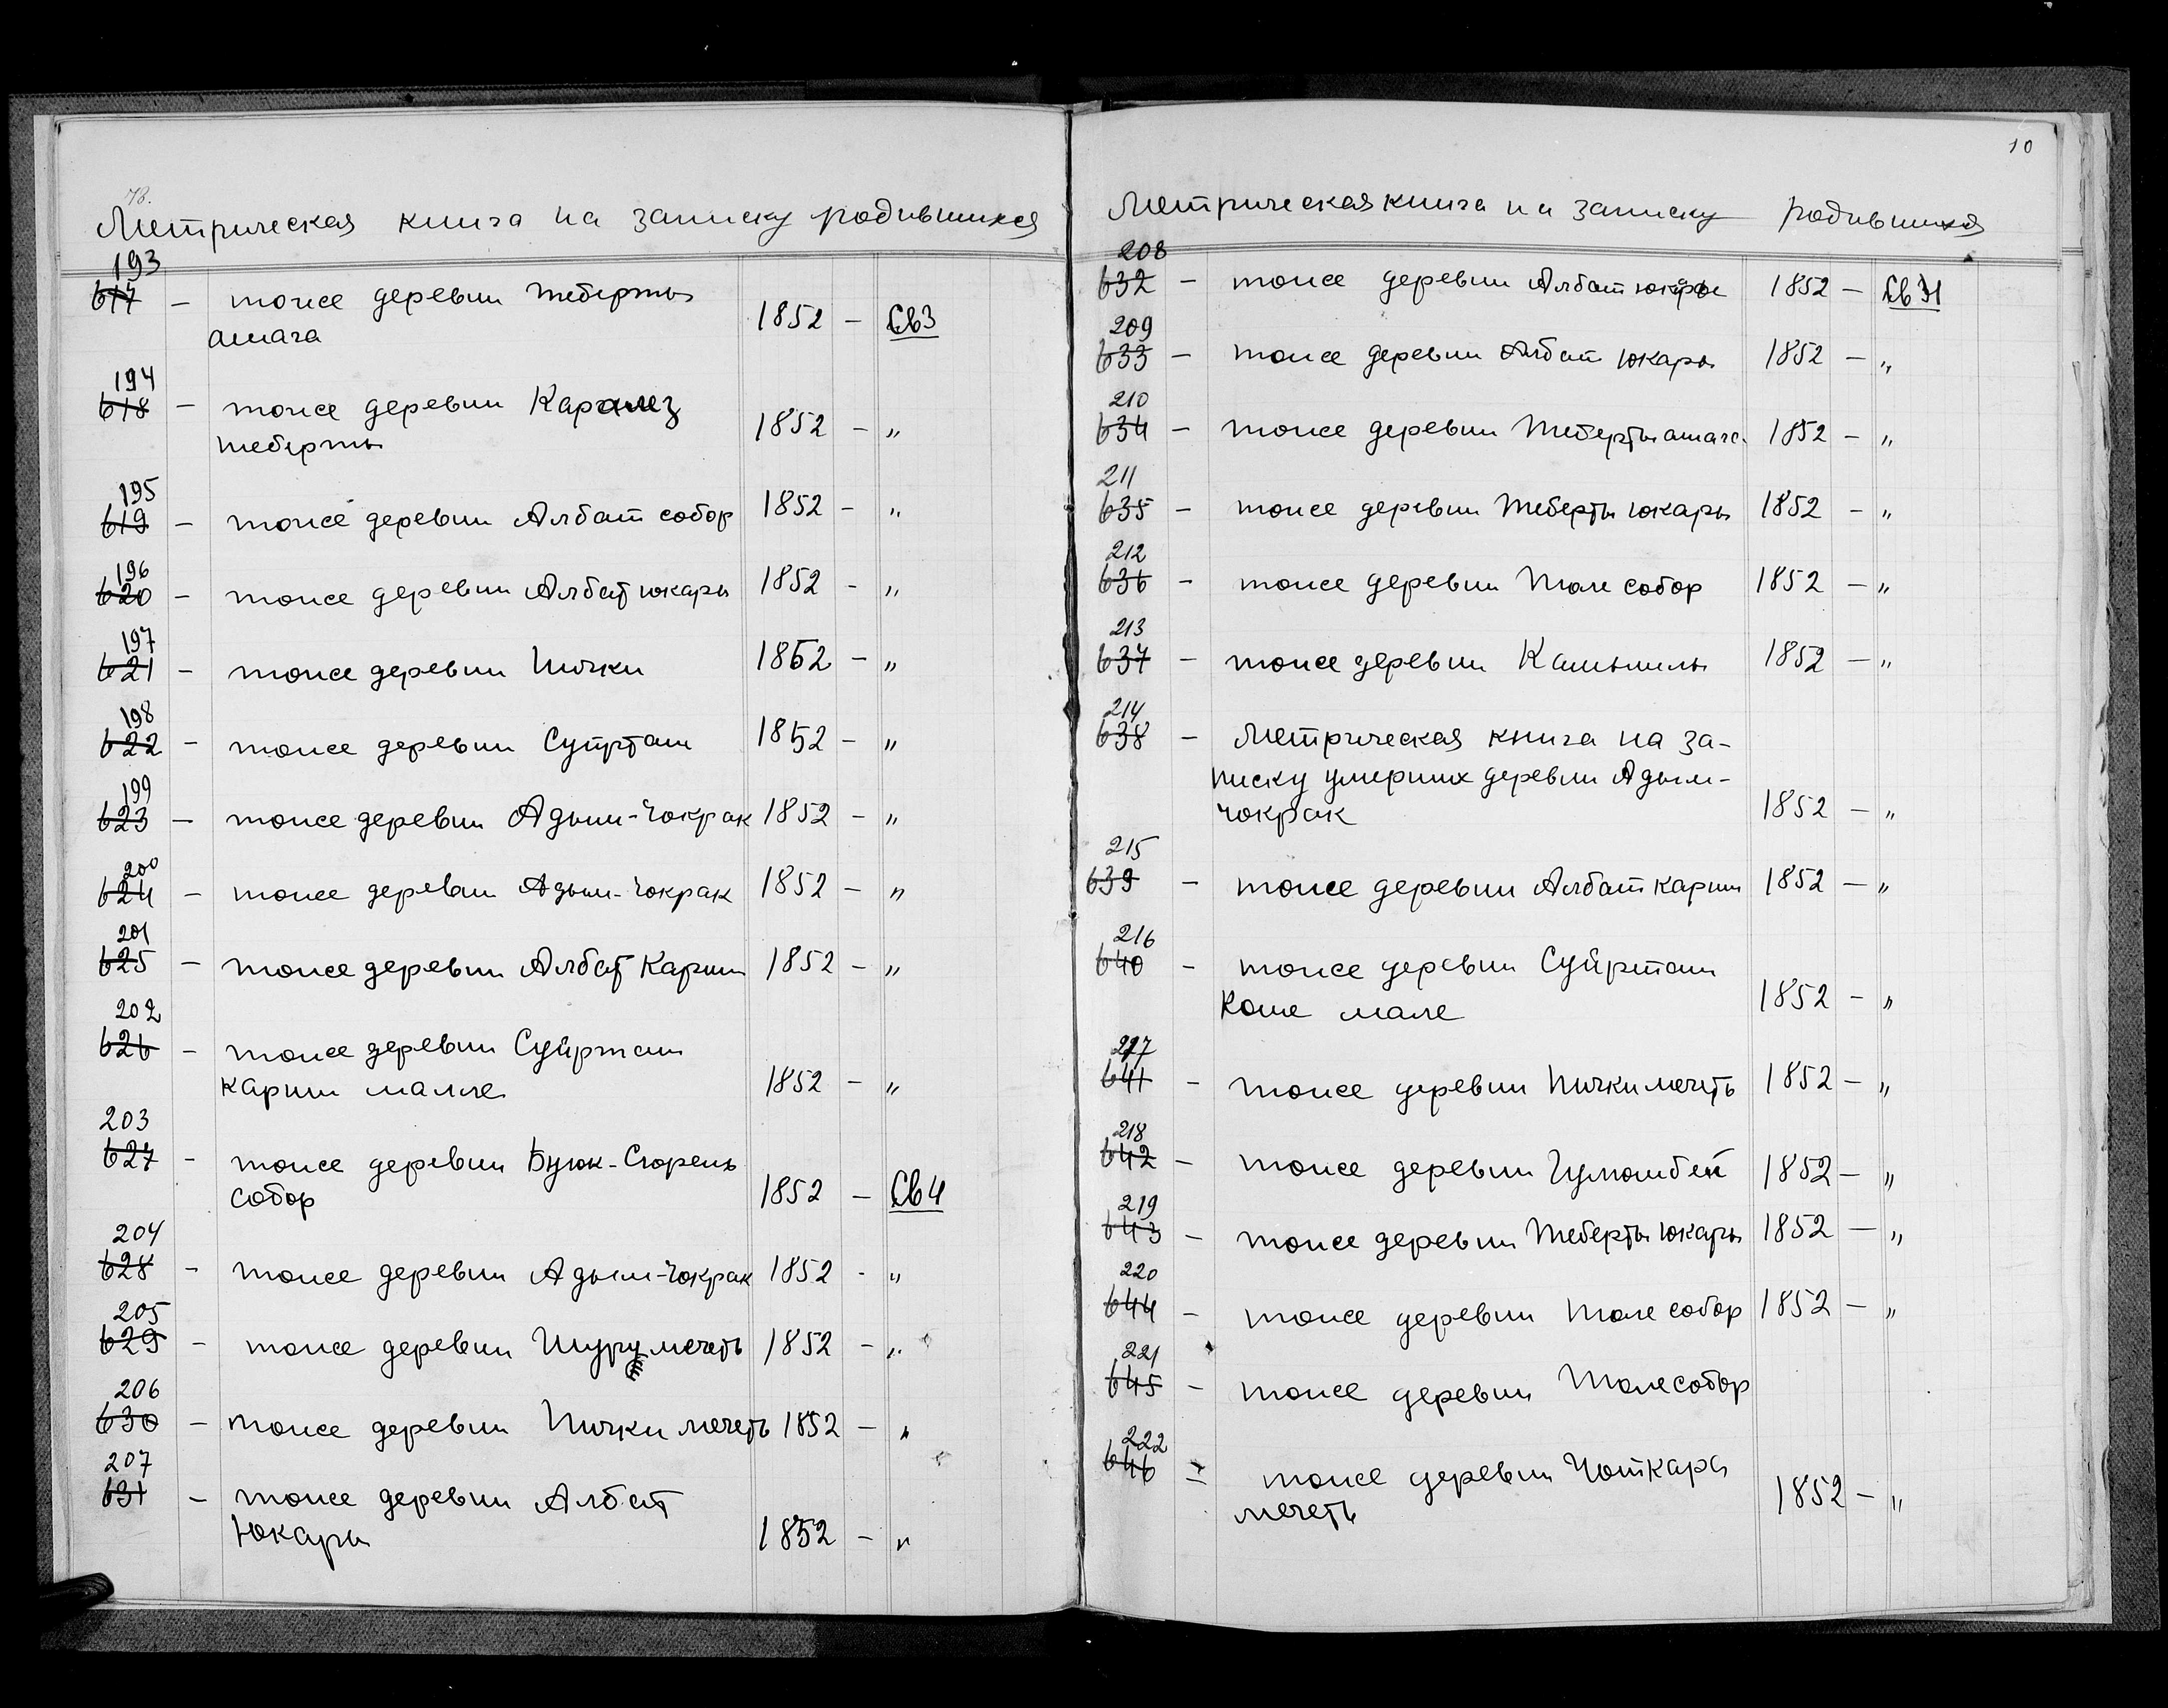 10
73.
Метрическая книга на записку родившихся
193
617 – тоже деревни Теберты
ашага 1852 – Св3
194
618 – тоже деревни Каралез
теберты 1852 – "
195
619 – тоже деревни Албат собор 1852 – "
196
620 – тоже деревни Албат юкары 1852 – "
197
621 – тоже деревни Пички 1852 – "
198
622 – тоже деревни Суйрташ 1852 – "
199
623 – тоже деревни Адым-Чокрак 1852 – "
200
624 – тоже деревни Адым-Чокрак 1852 – "
201
625 – тоже деревни Албат Карши 1852 – "
202
626 – тоже деревни Суйрташ
карши малле 1852 – "
203
627 – тоже деревни Буюк-Сюрень
собор 1852 – Св4
204
628 – тоже деревни Адым-Чокрак 1852 - "
205
629 – тоже деревни Шуру мечеть 1852 – "
206
630 – тоже деревни Пички мечеть 1852 – "
207
631 – тоже деревни Албат
Юкары 1852 – "
Метрическая книга на записку родившихся
208
632 – тоже деревни Албат юкары 1852 – Св 4
209
633 – тоже деревни Албат юкары 1852 – "
210
634 – тоже деревни Теберты ашага 1852 – "
211
635 – тоже деревни Теберты юкары 1852 – "
212
636 – тоже деревни Толе собор 1852 – "
213
637 – тоже деревни Кашьмиль 1852 – "
214
638 – Метрическая книга на за-
писку умерших деревни Адым-
чокрак 1852 – "
215
639 – тоже деревни Албат карши 1852 – "
216
640 – тоже деревни Суйрташ
Коше мале 1852 – "
217
641 – тоже деревни Пички мечеть 1852 – "
218
642 – тоже деревни 1852 – "
219
643 – тоже деревни Теберты юкары 1852 – "
220
644 – тоже деревни Толе собор 1852 – "
221
645 – тоже деревни Толе собор
222
646 – тоже деревни Чоткара
мечеть 1852 – "